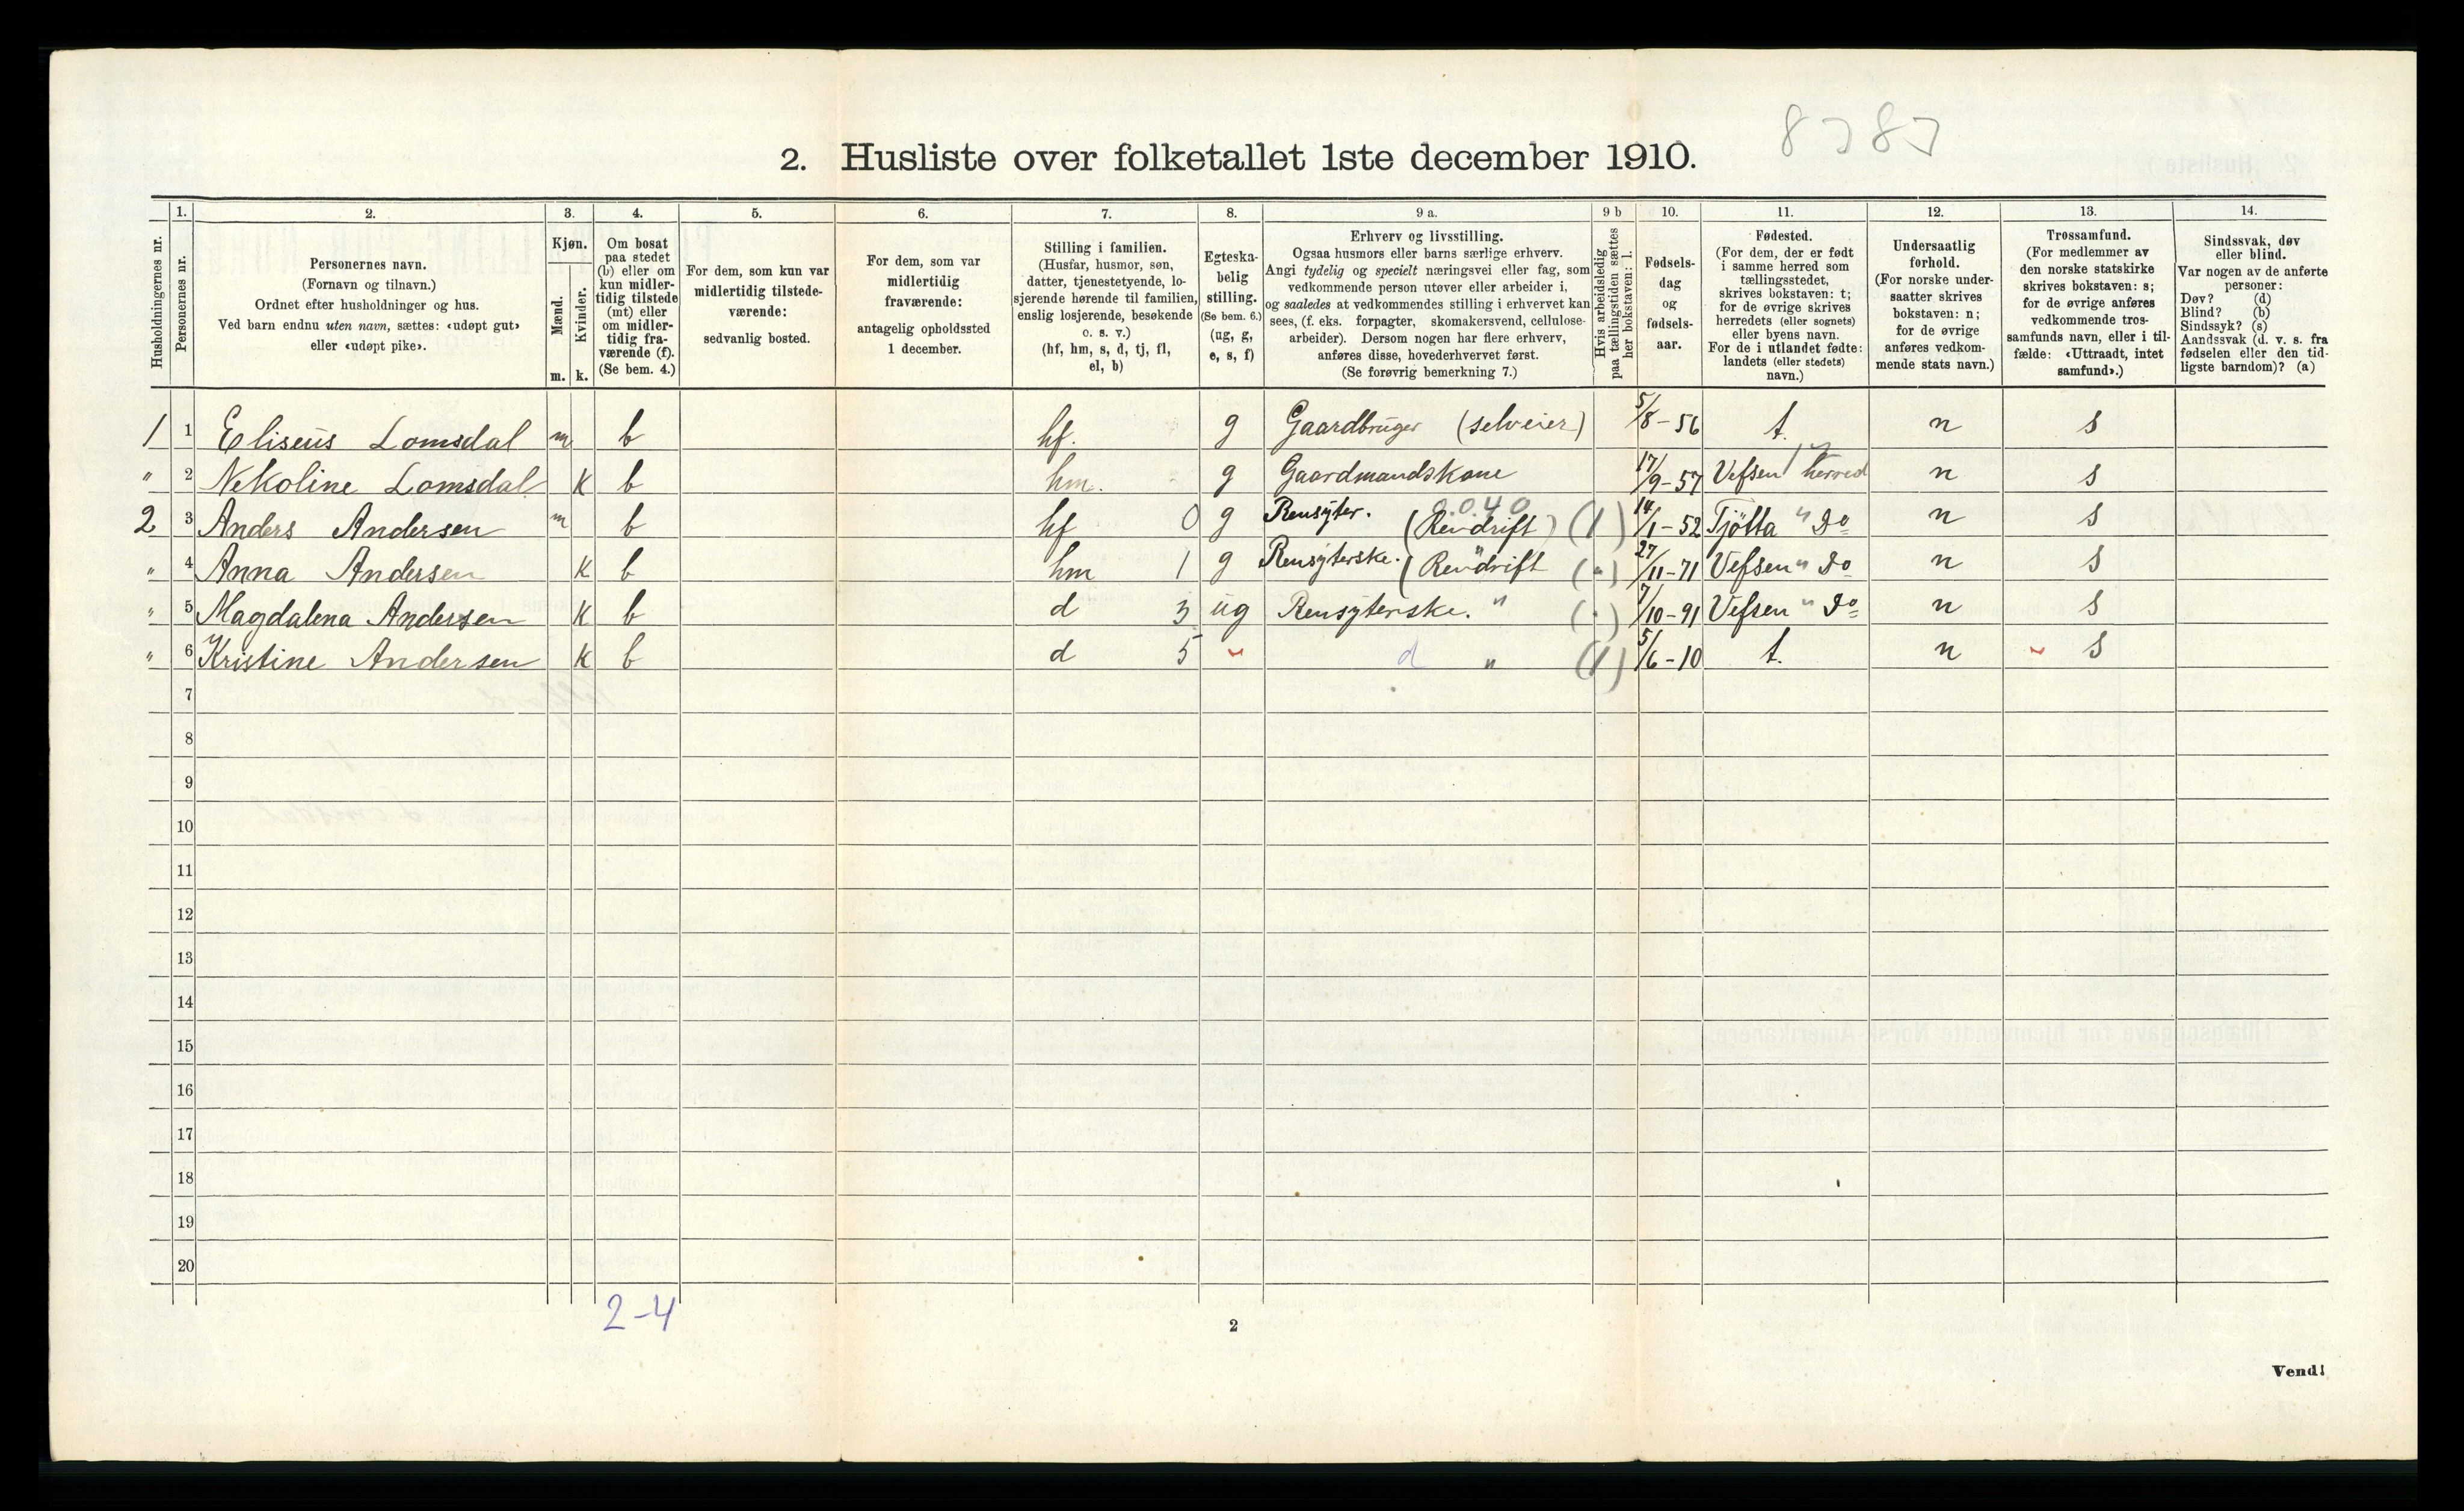 8787
2. Husliste over folketallet 1ste december 1910.
Husholdningernes nr.
1. Personernes nr.
2. Personernes navn.
(Fornavn og tilnavn.)
Ordnet efter husholdninger og hus.
Ved barn endnu uten navn, sættes: «udøpt gut»
eller «udøpt pike».
3. Kjøn.
Mænd. m.
Kvinder. k.
4. Om bosat
paa stedet
(b) eller om
kun midler-
tidig tilstede
(mt) eller
om midler-
tidig fra-
værende (f).
(Se bem. 4.)
5. For dem, som kun var
midlertidig tilstede-
værende:
sedvanlig bosted.
6. For dem, som var
midlertidig
fraværende:
antagelig opholdssted
1 december.
7. Stilling i familien.
(Husfar, husmor, søn,
datter, tjenestetyende, lo-
sjerende hørende til familien,
enslig losjerende, besøkende
o. s. v.)
(hf, hm, s, d, tj, fl,
el, b)
8. Egteska-
belig
stilling.
(Se bem. 6.)
(ug, g,
e, s, f)
9 a. Erhverv og livsstilling.
Ogsaa husmors eller barns særlige erhverv.
Angi tydelig og specielt næringsvei eller fag, som
vedkommende person utøver eller arbeider i,
og saaledes at vedkommendes stilling i erhvervet kan
sees, (f. eks. forpagter, skomakersvend, cellulose-
arbeider). Dersom nogen har flere erhverv,
anføres disse, hovederhvervet først.
(Se forøvrig bemerkning 7.)
9 b Hvis arbeidsledig
paa tællingstiden sættes
her bokstaven: l.
10. Fødsels-
dag
og
fødsels-
aar.
11. Fødested.
(For dem, der er født
i samme herred som
tællingsstedet,
skrives bokstaven: t;
for de øvrige skrives
herredets (eller sognets)
eller byens navn.
For de i utlandet fødte:
landets (eller stedets)
navn.)
12. Undersaatlig
forhold.
(For norske under-
saatter skrives
bokstaven: n;
for de øvrige
anføres vedkom-
mende stats navn.)
13. Trossamfund.
(For medlemmer av
den norske statskirke
skrives bokstaven: s;
for de øvrige anføres
vedkommende tros-
samfunds navn, eller i til-
fælde: «Uttraadt, intet
samfund».)
14. Sindssvak, døv
eller blind.
Var nogen av de anførte
personer:
Døv? (d)
Blind? (b)
Sindssyk? (s)
Aandssvak (d. v. s. fra
fødselen eller den tid-
ligste barndom)? (a)
1 1 Eliseus Lomsdal m b hf. g Gaardbruger (selveier) 5/8-56 t. n s
" 2 Nekoline Lomsdal K b hm. g Gaardmandskone 17/9-57 Vefsen herred n s
0.0.40
2 3 Anders Andersen m b hf 0 g Rensyter. (Rendrift) (1) 14/1-52 Tjötta " Do n s
" 4 Anna Andersen K b hm 1 g Rensyterske. (Rendrift (") 27/11-71 Vefsen " Do n s
" 5 Magdalena Andersen K b d 3 ug Rensyterske. " (") 7/10-91 Vefsen " Do n s
" 6 Kristine Andersen K b d 5 d " (1) 5/6-10 t. n s
7
8
9
10
11
12
13
14
15
16
17
18
19
20
2-4
2
Vend!